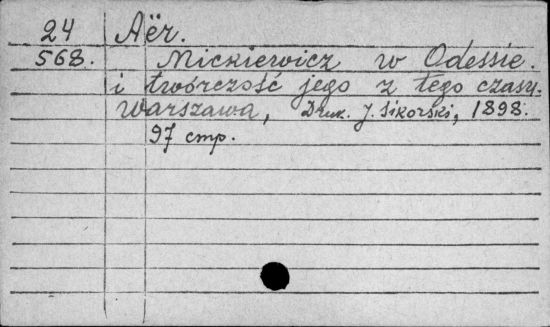 24 Aër.
568. Mickiewicz w Odessie.
i twórczość jego z tego czasy.
Warszawa, Druk. J. Sikorski, 1898.
97 cmp.